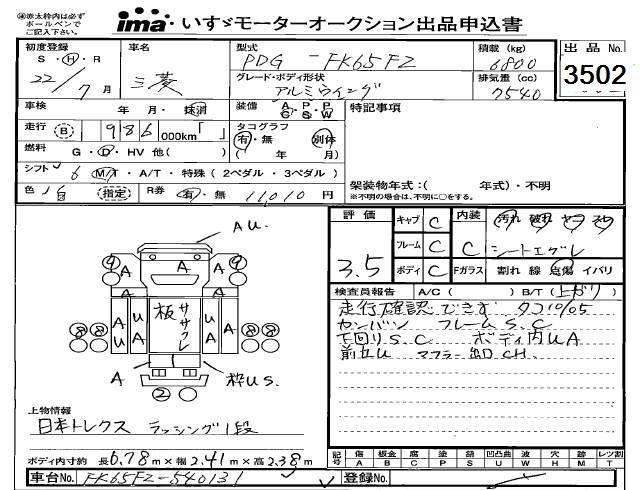 ㊟赤太枠内は必ず
ボールペンで
ご記入下さい。
ima いすゞモーターオークション出品申込書
初度登録 車名 型式 積載(kg) 出品No.
S・H・R 三菱 PDG-FK65FZ 6800
22/7月 グレード・ボディ形状 排気量(cc) 3502
アルミウイング 7540
車検 年・月・抹消 装備 A・P・P C S W 特記事項
走行 (B) 986 000km「 」 タコグラフ
有・無 別体
燃料 G・D・HV 他( ) ( 年 月)
シフト 6 M/T・A/T・特殊(2ペダル・3ペダル)
色 白 指定 R券 有・無 11,010円 架装物年式:( 年式)・不明
※不明の場合は、不明に○をする。
評価 キャブ C 内装 汚れ 破れ
3.5 フレーム C C シートスグレ
ボディ C Fガラス 割れ 線 点傷 イバリ
検査員報告 A/C( ) B/T(上がり)
走行確認できず タコ10/05
カンバン フレームS.C
下回りS.C ボディ内UA
前立U マフラー出口CH.
AU.
A A A
A U A 板 ササクレ A U A
A 枠US.
②
上物情報
日本トレクス ラッシング1段
ボディ内寸約 長6.78m×幅2.41m×高2.38m
記号 傷 A 板金 B 腐 C 歪 P 補 S 凹凸曲 U 波 W 穴 H 跡 M レツ割 T
車台No. FK65FZ-540131 登録No.